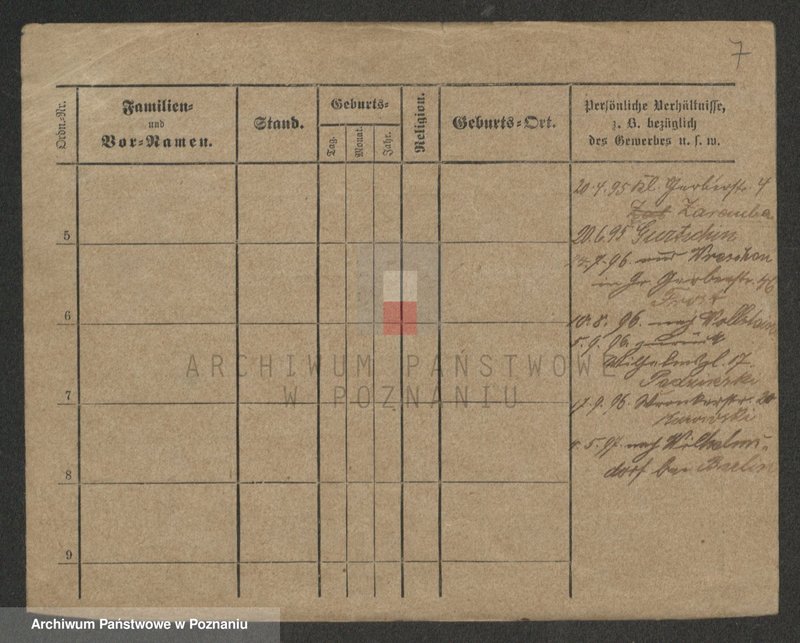 7
Ordn.-Nr.
Familien-
und
Vor-Namen.
Stand.
Geburts-
Tag.
Monat.
Jahr.
Religion.
Geburts-Ort.
Persönliche Verhältnisse,
z. B. bezüglich
des Gewerbes u. s. w.
20.4.95 Kl. Gerberstr. 4
Zaremba
5
20.6.95 Gurtschin
7.96. Wreschen
in Gr. Gerberstr. 46
Frost
6
10.8. 96. nach Wollstein
5.9.96. zurück
Wilhelmspl. 17
7
17.9.96. Wronkerstr. 20
8
5.97. nach Wilhelms-
dorf bei Berlin
9
ARCHIWUM PAŃSTWOWE
W POZNANIU
Archiwum Państwowe w Poznaniu